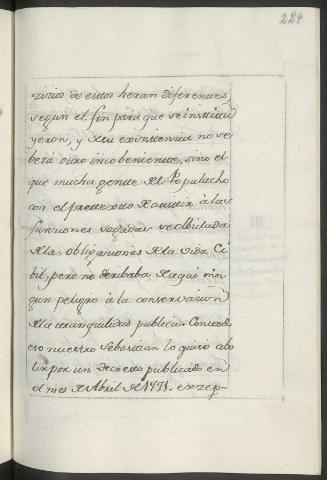 229
zicios de estos heran diferentes
segun el fin para que se instituu
yeron, y su existencia no se
beia otro incobeniente, sino el
que mucha gente del Populacho
con el pretexto de asistir à las
funciones sagadas, se olbidaba
de las obligaciones de la vida Ci
bil, pero no deribaba de aqui nin
gun peligro à la conservacion
de la tranquilidad publica. Con todo
eso nuestro Sebastian lo quiso abo
lir por un decreto publicado en
el mes de Abril de 1731. excep-